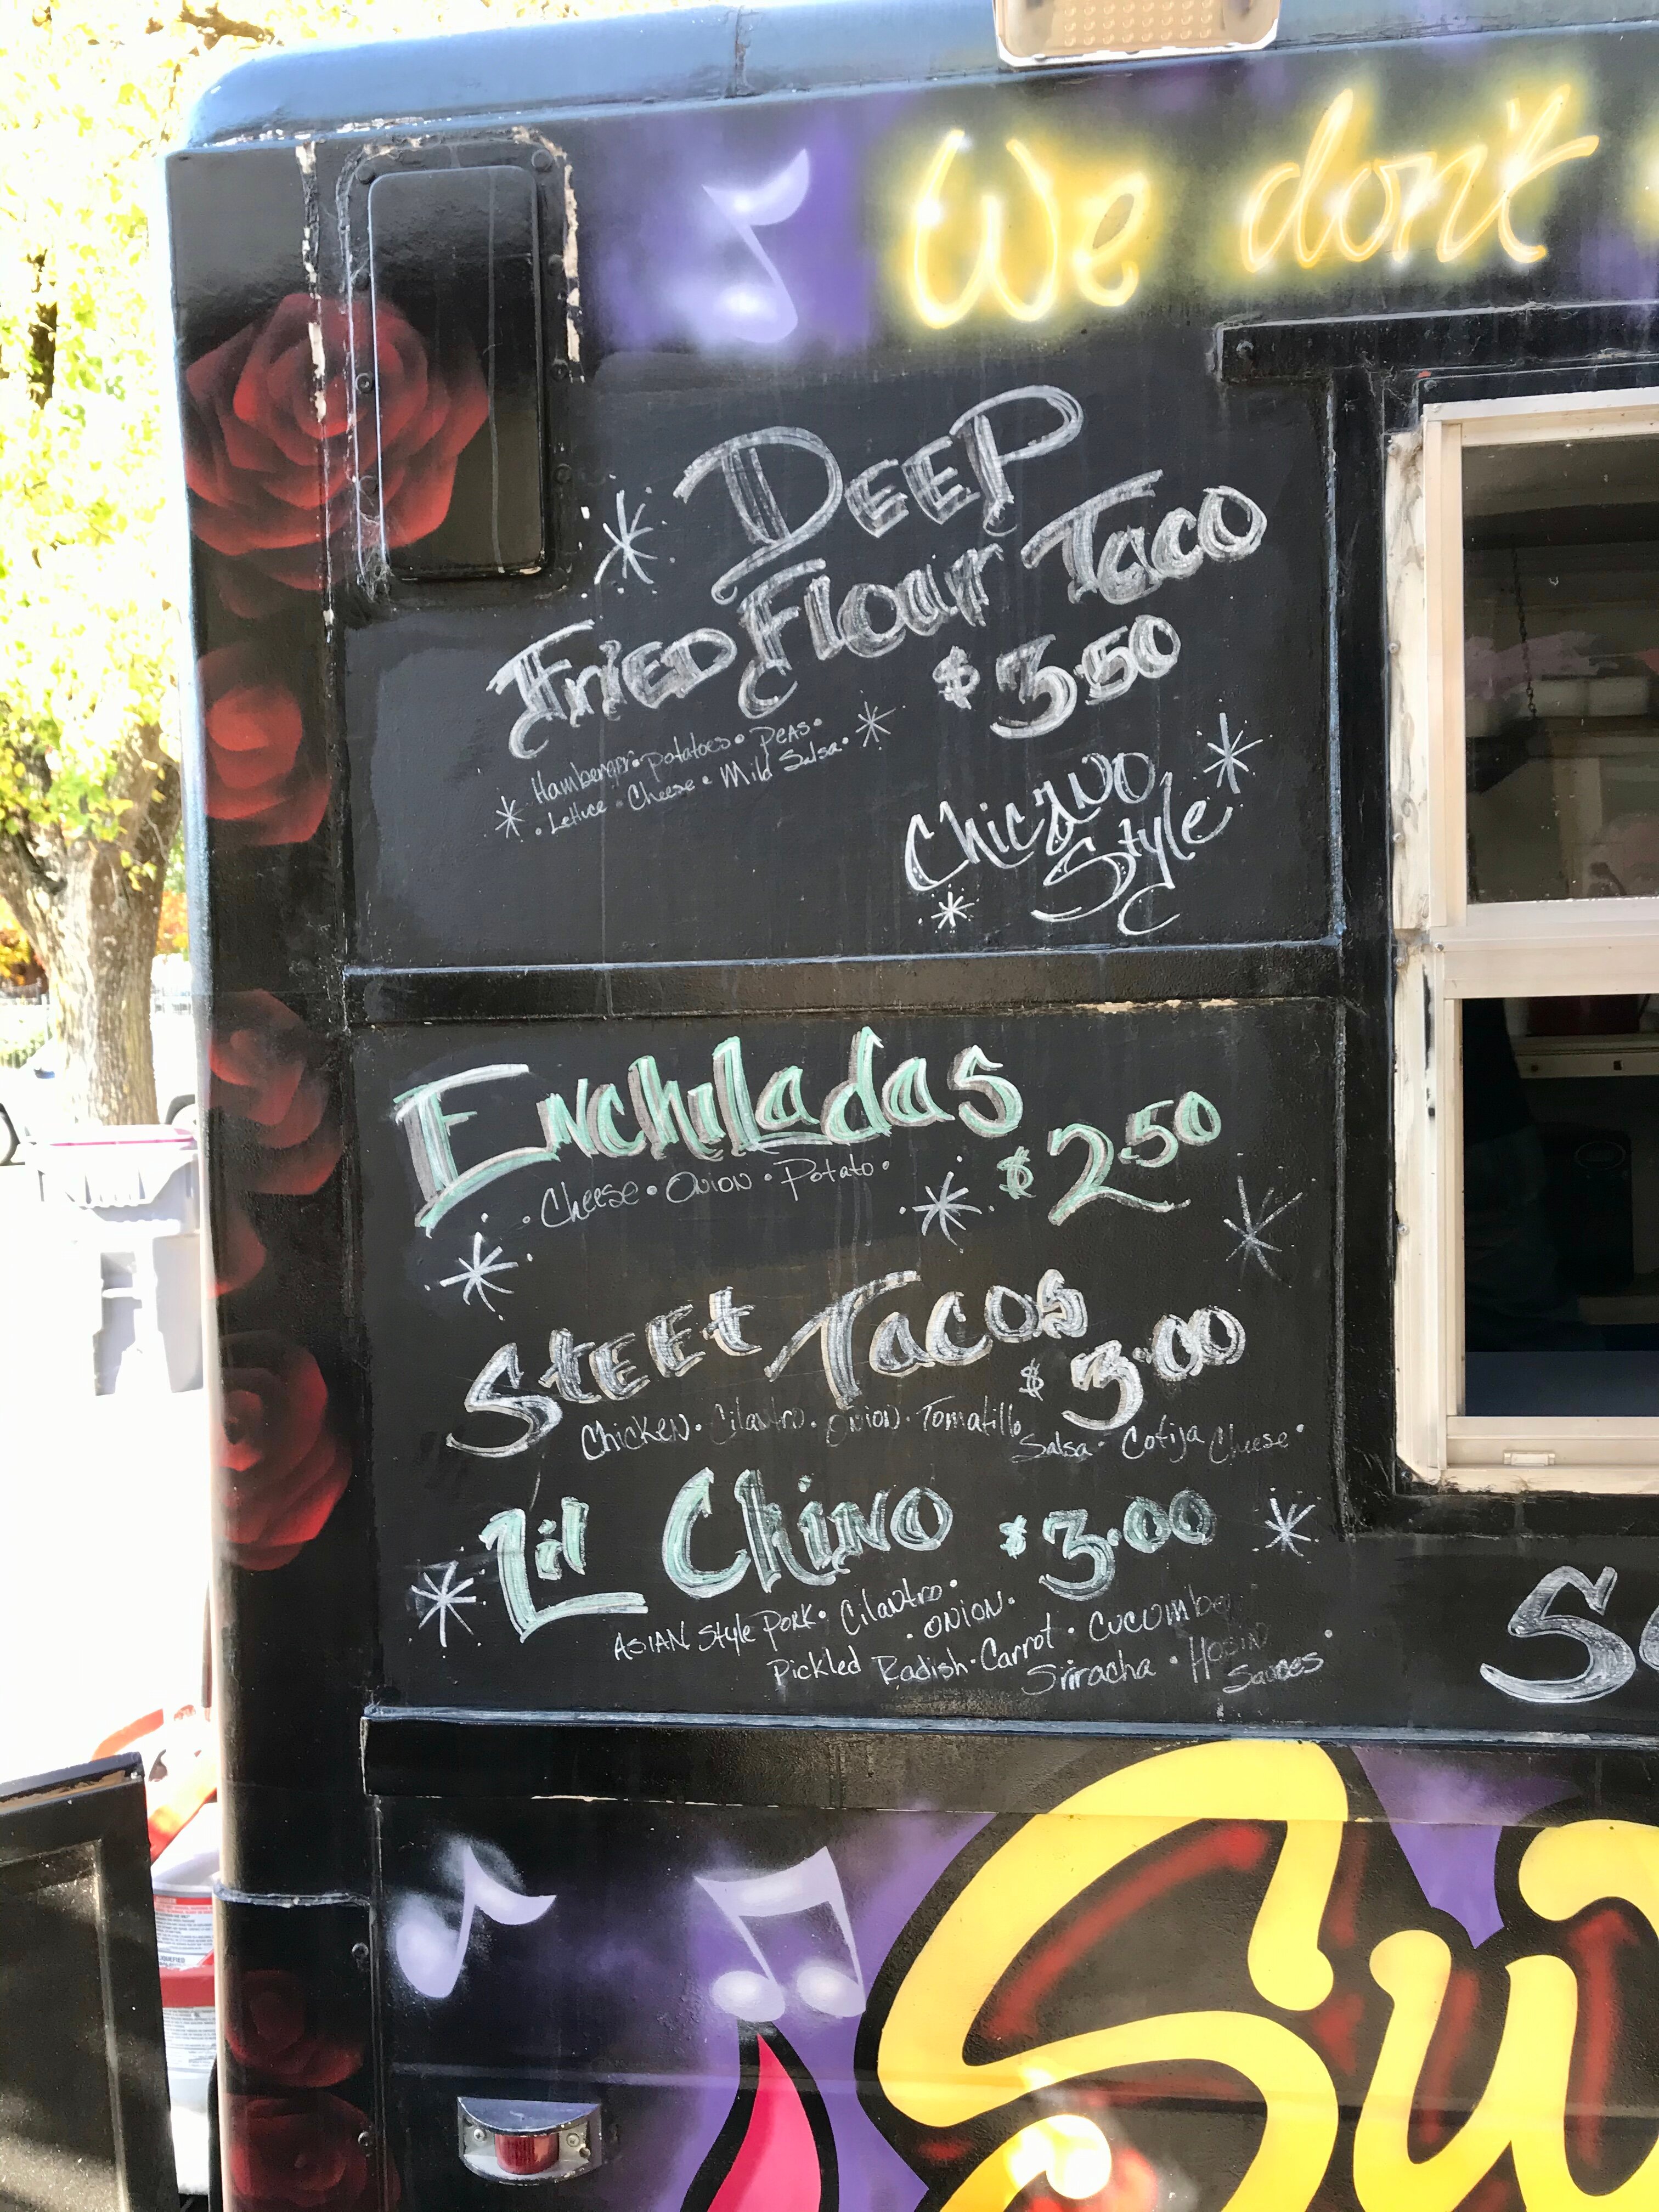 We don't
Deep
Fried Flour Taco
$3.50
Hamberger • potatoes • Peas •
• Lettuce • Cheese • Mild Salsa •
Chicano
Style
Enchiladas
$2.50
• Cheese • Onion • Potato •
Steeet Tacos
$3.00
Chicken • Cilantro • Onion • Tomatillo
Salsa • Cotija Cheese •
Lil Chino $3.00
Asian Style Pork • Cilantro •
• Onion •
Pickled Radish • Carrot • Cucumber
Sriracha • Hosin
Sauces